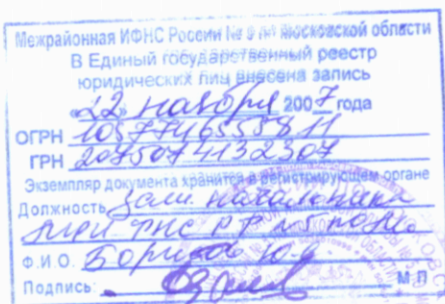 Межрайонная ИФНС России № по Московской области
В Единый государственный реестр
юридических лиц внесена запись
«22» ноября 2007 года
ОГРН 1057746555811
ГРН 2075074132307
Экземпляр документа хранится в регистрирующем органе
Должность зам. начальника
ФНС РФ по
Ф.И.О.
Подпись:
М.П.